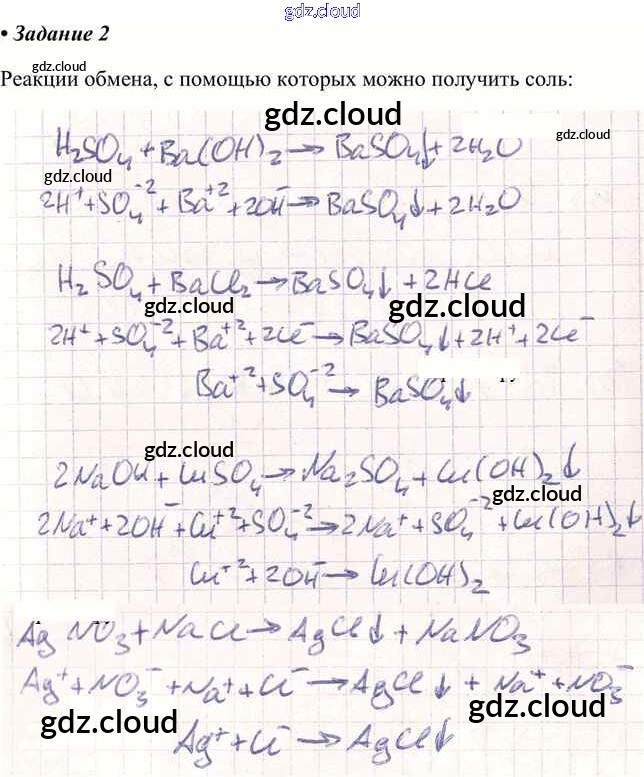 gdz.cloud
• Задание 2
gdz.cloud
Реакции обмена, с помощью которых можно получить соль:
gdz.cloud
gdz.cloud
H₂SO₄ + Ba(OH)₂ → BaSO₄↓ + 2H₂O
gdz.cloud
2H⁺ + SO₄⁻² + Ba⁺² + 2OH⁻ → BaSO₄↓ + 2H₂O
H₂SO₄ + BaCl₂ → BaSO₄↓ + 2HCl
gdz.cloud
gdz.cloud
2H⁺ + SO₄⁻² + Ba⁺² + 2Cl⁻ → BaSO₄↓ + 2H⁺ + 2Cl⁻
Ba⁺² + SO₄⁻² → BaSO₄↓
gdz.cloud
2NaOH + CuSO₄ → Na₂SO₄ + Cu(OH)₂↓
gdz.cloud
2Na⁺ + 2OH⁻ + Cu⁺² + SO₄⁻² → 2Na⁺ + SO₄⁻² + Cu(OH)₂↓
gdz.cloud
Cu⁺² + 2OH⁻ → Cu(OH)₂
AgNO₃ + NaCl → AgCl↓ + NaNO₃
Ag⁺ + NO₃⁻ + Na⁺ + Cl⁻ → AgCl↓ + Na⁺ + NO₃⁻
gdz.cloud
gdz.cloud
Ag⁺ + Cl⁻ → AgCl↓